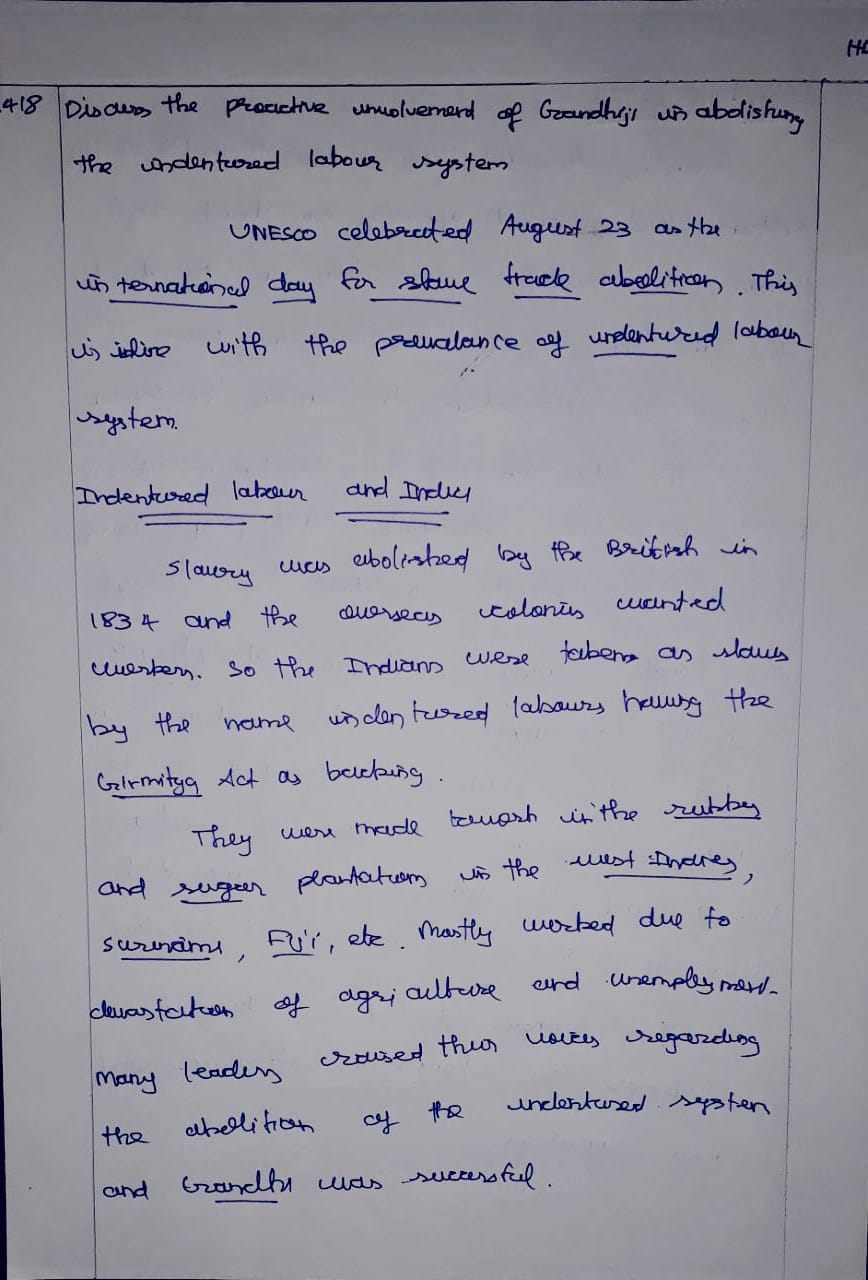 418 Discuss the proactive involvement of Gandhiji in abolishing
the indentured labour system
UNESCO celebrated August 23 as the
international day for slave trade abolition. This
is inline with the prevalance of indentured labour
system.
Indentured labour and India
Slavery was abolished by the British in
1834 and the overseas colonies wanted
workers. So the Indians were taken as slaves
by the name indentured labours having the
Girmitya Act as backing.
They were made to work in the rubber
and sugar plantations in the West Indies,
Suriname, Fiji, etc. Mostly worked due to
devastation of agriculture and unemployment.
Many leaders raised their voices regarding
the abolition of the indentured system
and Gandhi was successful.